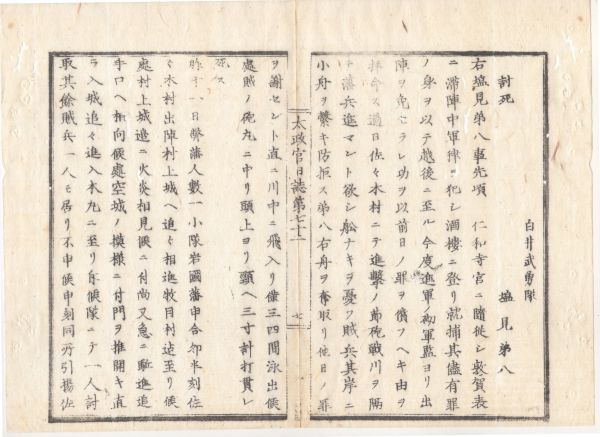 討死
白井武勇隊 塩見弟八
右塩見弟八事先頃 仁和寺宮ニ隨從シ敦賀表
ニ滯陣中軍律ヲ犯シ酒樓ニ登リ就捕其儘有罪
ノ身ヲ以テ越後ニ至ル今度進軍ノ砌軍監ヨリ出
陣ヲ免セラレ功ヲ以前日ノ罪ヲ償フヘキ由ヲ
ス過日佐々木村ニテ進擊ノ節砲戰川ヲ隔
テ藩兵進マント欲シ船ナキヲ憂フ賊兵其岸ニ
小舟ヲ繫キ防拒ス弟八右舟ヲ奪取リ他日ノ罪
太政官日誌第七十一
七
ヲ謝セント直ニ川中ニ飛入リ僅三四間泳出候
處賊ノ砲丸ニ中リ頭上ヨリ頸ヘ三寸計打貫レ
死ス
昨十一日弊藩人數一小隊岩國藩申合卯半刻佐
々木村出陣村上城ヘ追々相進牧目村迠至リ候
處村上城邊ニ火炎相見候ニ付尚又急ニ馳進追
手口ヘ相向候處空城ノ模樣ニ付門ヲ推開キ直
ラ入城追々進入本九ニ至リ自候隊ニテ一人討
取其餘賊兵一人モ居リ不申候申刻同所引揚佐